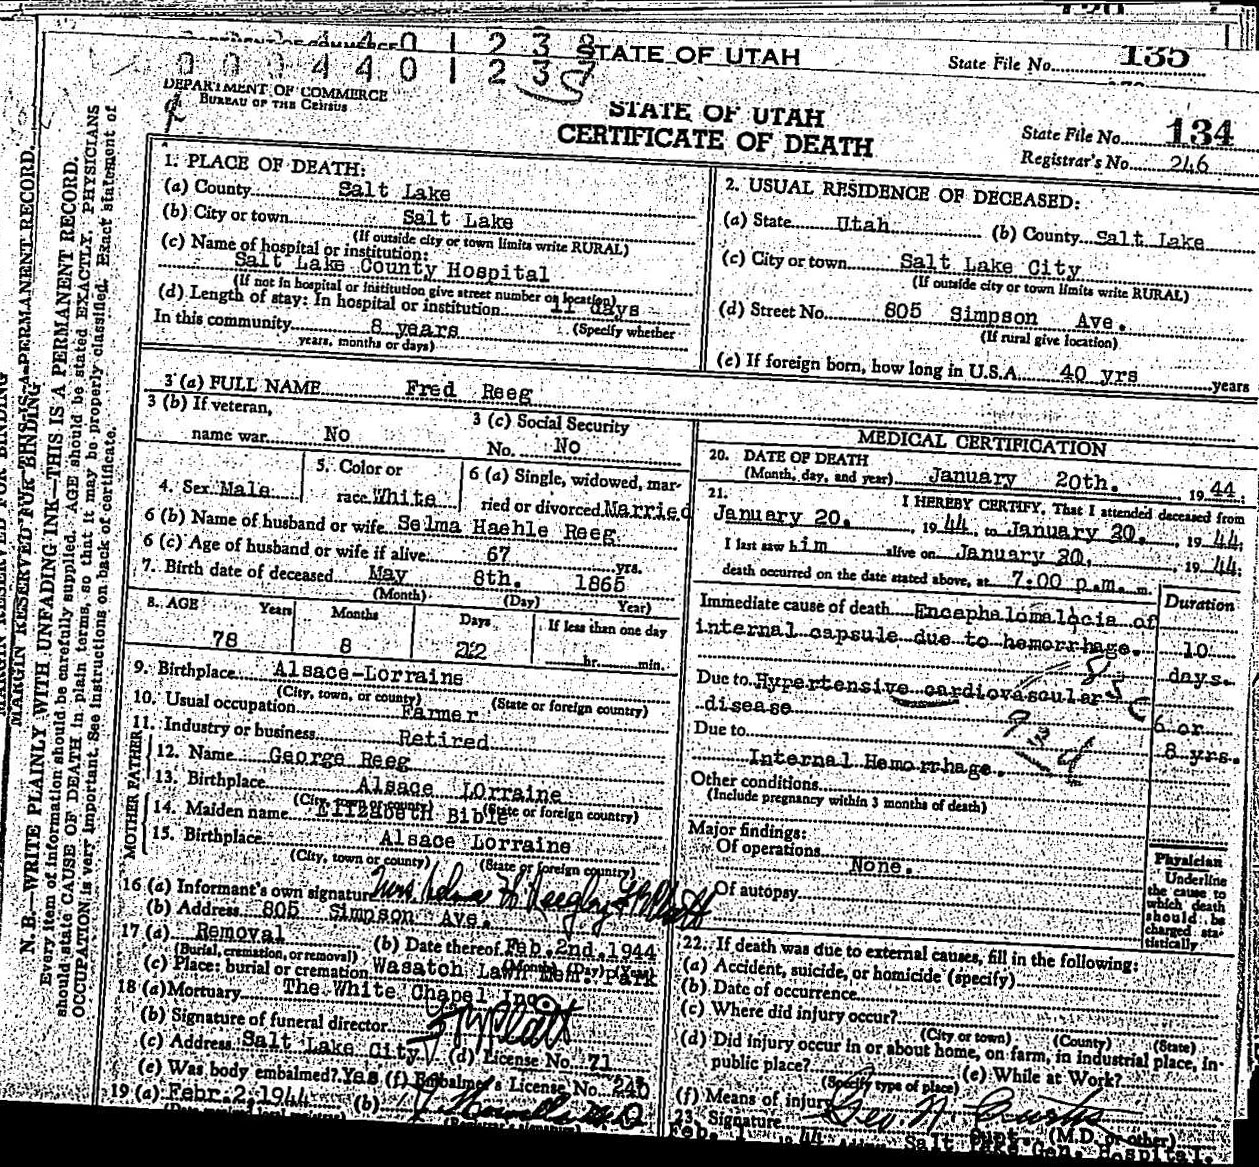 0 0 0 4 4 0 1 2 3
STATE OF UTAH
State File No. 135
DEPARTMENT OF COMMERCE
BUREAU OF THE CENSUS
STATE OF UTAH
CERTIFICATE OF DEATH
State File No. 134
Registrar's No. 246
MARGIN RESERVED FOR BINDING
N. B.—WRITE PLAINLY WITH UNFADING INK—THIS IS A PERMANENT RECORD.
Every item of information should be carefully supplied. AGE should be stated EXACTLY. PHYSICIANS
should state CAUSE OF DEATH in plain terms, so that it may be properly classified. Exact statement of
OCCUPATION is very important. See instructions on back of certificate.
1. PLACE OF DEATH:
(a) County Salt Lake
(b) City or town Salt Lake
(If outside city or town limits write RURAL)
(c) Name of hospital or institution:
Salt Lake County Hospital
(If not in hospital or institution give street number or location)
(d) Length of stay: In hospital or institution 11 days
In this community 8 years (Specify whether
years, months or days)
2. USUAL RESIDENCE OF DECEASED:
(a) State Utah (b) County Salt Lake
(c) City or town Salt Lake City
(If outside city or town limits write RURAL)
(d) Street No. 805 Simpson Ave.
(If rural give location)
(e) If foreign born, how long in U.S.A. 40 yrs years
3 (a) FULL NAME Fred Reeg
3 (b) If veteran,
name war No
3 (c) Social Security
No. No
4. Sex Male
5. Color or
race White
6 (a) Single, widowed, mar-
ried or divorced Married
6 (b) Name of husband or wife Selma Haehle Reeg
6 (c) Age of husband or wife if alive 67 yrs.
7. Birth date of deceased May 8th. 1865
(Month) (Day) Year)
8. AGE Years Months Days If less than one day
78 8 22 hr. min.
9. Birthplace Alsace-Lorraine
(City, town, or county) (State or foreign country)
10. Usual occupation Farmer
11. Industry or business Retired
FATHER
12. Name George Reeg
13. Birthplace Alsace Lorraine
(City, town or county) (State or foreign country)
MOTHER
14. Maiden name Elizabeth Bible
15. Birthplace Alsace Lorraine
(City, town or county) (State or foreign country)
16 (a) Informant's own signature Mrs. Selma H Reeg by
(b) Address 805 Simpson Ave.
17 (a) Removal (b) Date thereof Feb. 2nd. 1944
(Burial, cremation, or removal) (Month) (Day) (Year)
(c) Place: burial or cremation Wasatch Lawn Mem. Park
18 (a) Mortuary The White Chapel Inc.
(b) Signature of funeral director
(c) Address Salt Lake City (d) License No. 71
(e) Was body embalmed? Yes (f) Embalmer's License No. 240
19 (a) Febr. 2, 1944 (b) M.D.
MEDICAL CERTIFICATION
20. DATE OF DEATH
(Month, day, and year) January 20th. 19 44
21. I HEREBY CERTIFY, That I attended deceased from
January 20. , 19 44, to January 20. , 19 44;
I last saw him alive on January 20, , 19 44;
death occurred on the date stated above, at 7:00 p.m. m.
Duration
Immediate cause of death Encephalomalacia of
internal capsule due to hemorrhage. 10
days.
Due to Hypertensive cardiovascular
disease 6 or
Due to 8 yrs.
Internal Hemorrhage.
Other conditions
(Include pregnancy within 3 months of death)
Major findings:
Of operations
None.
Of autopsy
Physician
Underline
the cause to
which death
should be
charged sta-
tistically
22. If death was due to external causes, fill in the following:
(a) Accident, suicide, or homicide (specify)
(b) Date of occurrence
(c) Where did injury occur?
(City or town) (County) (State)
(d) Did injury occur in or about home, on farm, in industrial place, in-
public place? (e) While at Work?
(Specify type of place)
(f) Means of injury
23. Signature Geo. N. Curtis
Supt. (M.D. or other)
Feb. 1 44 Salt Lake Gen. Hospital.